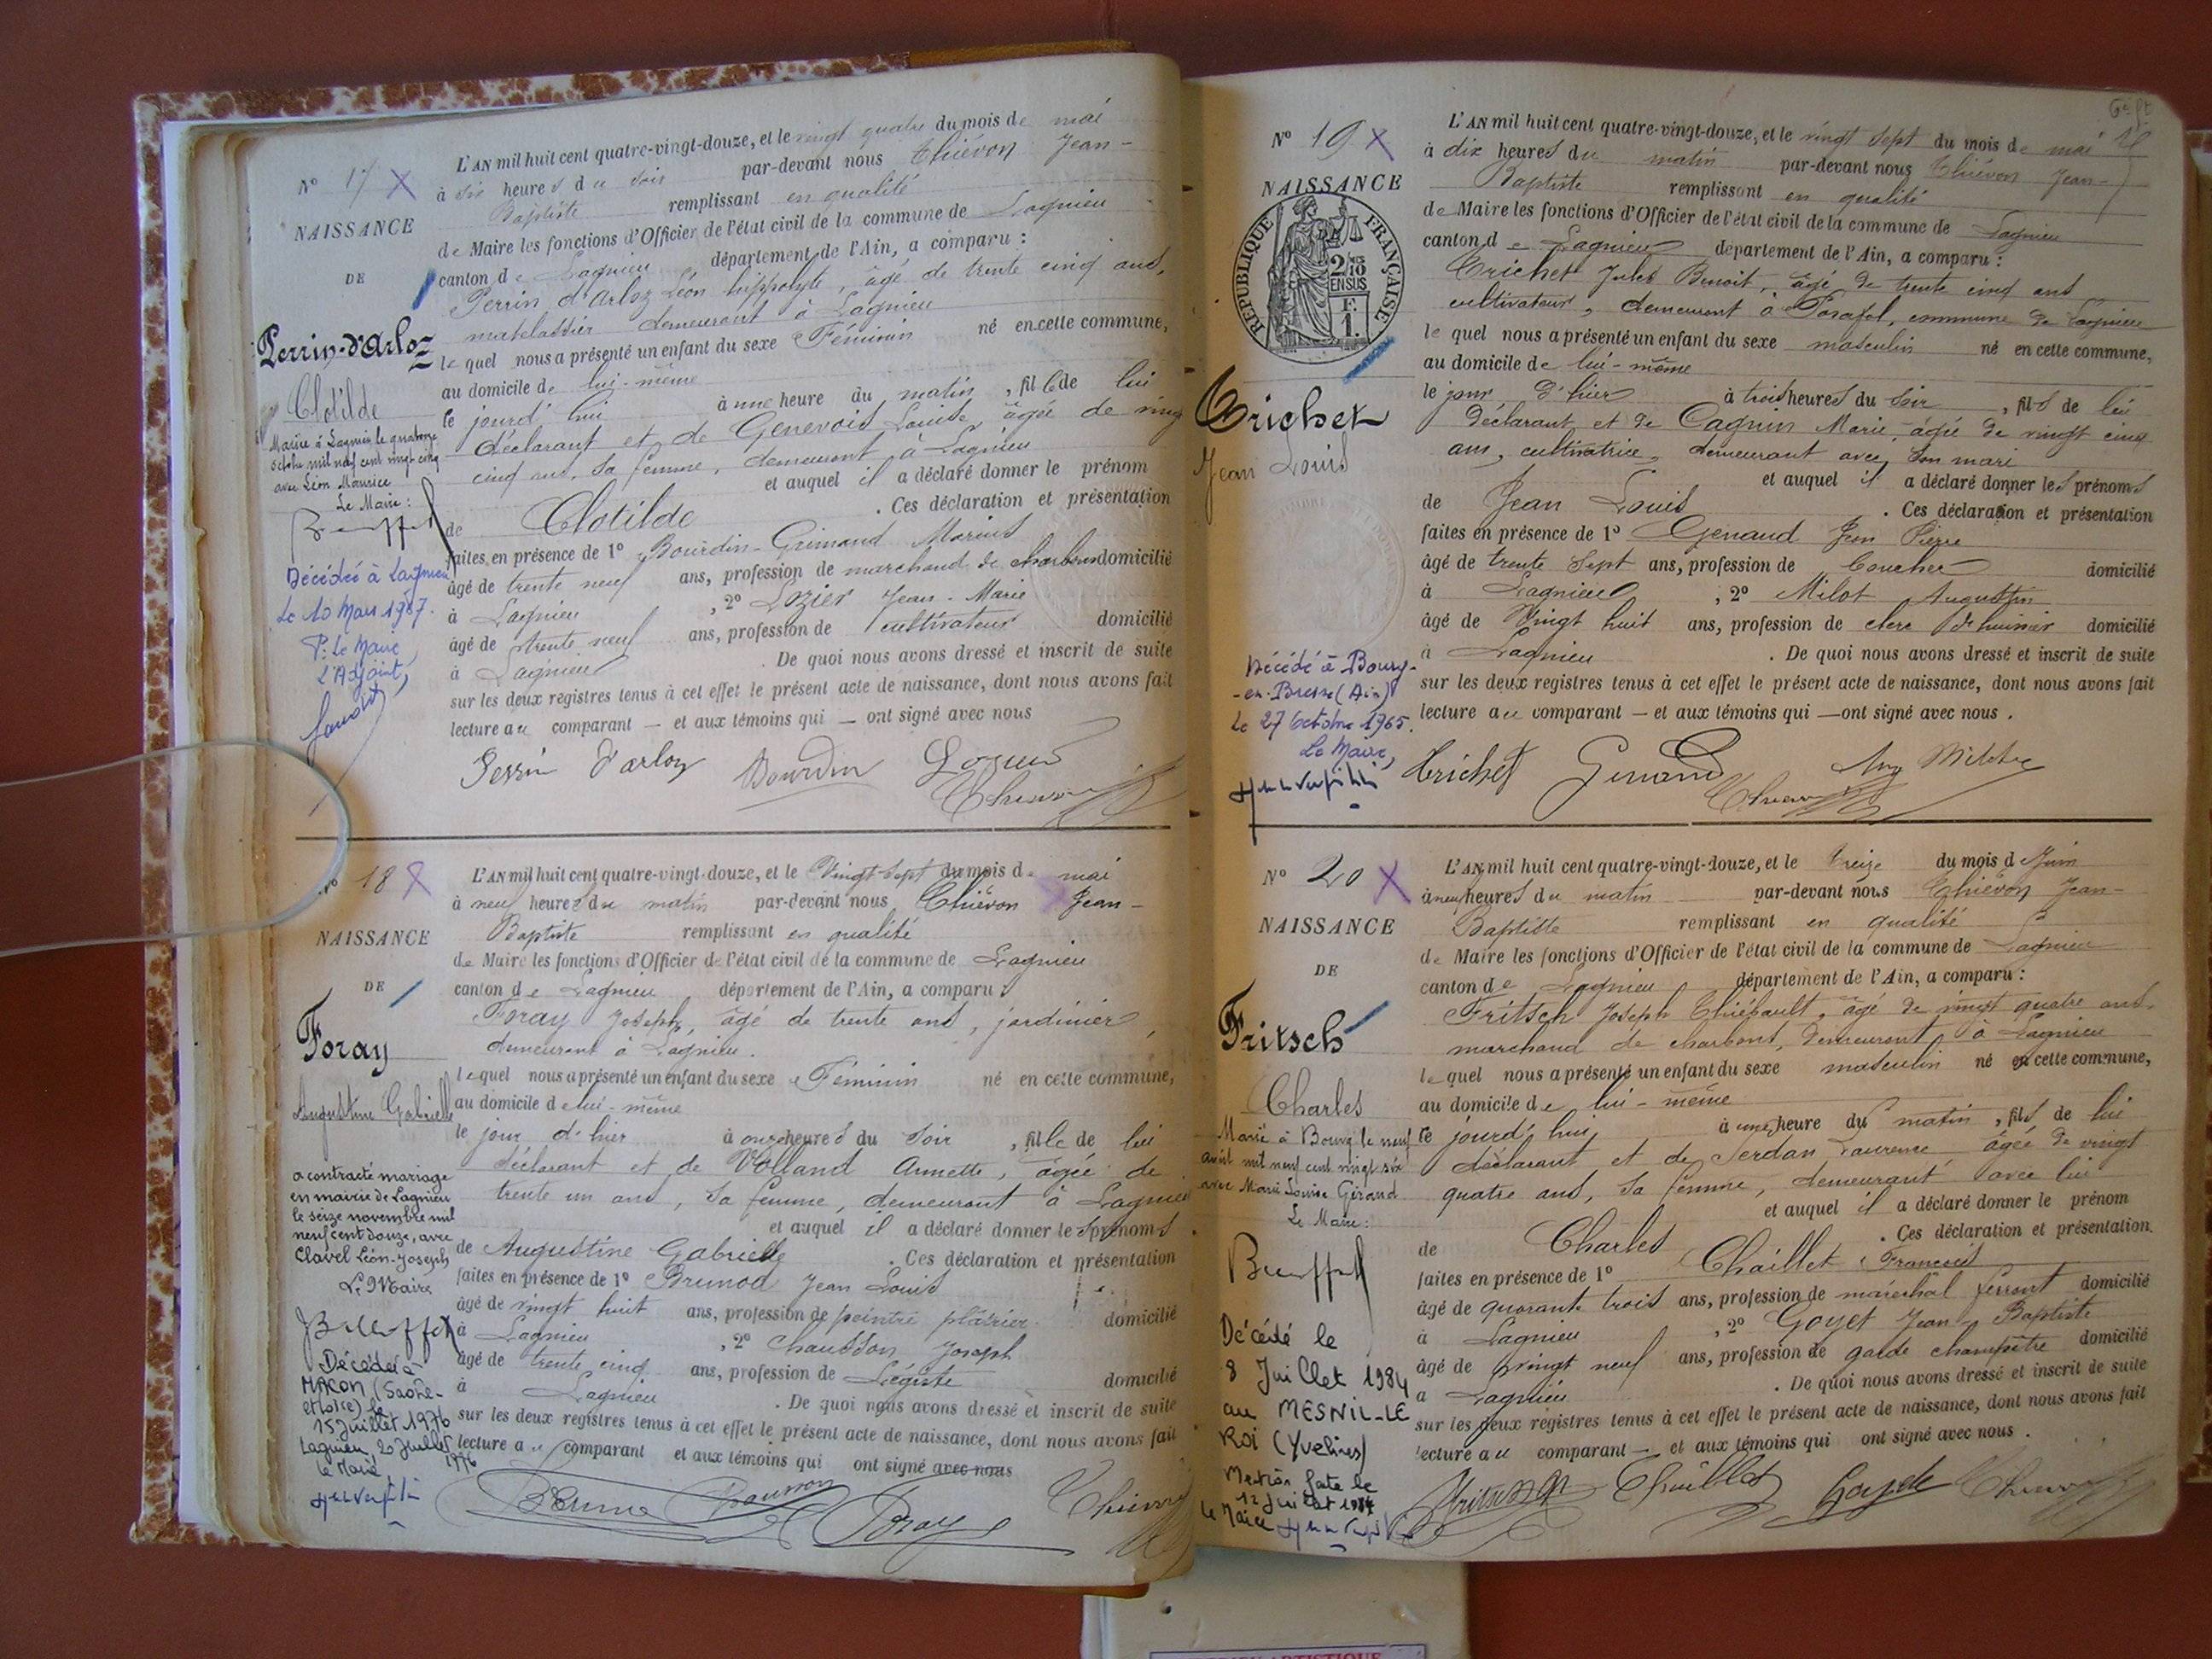 N° 17 X
NAISSANCE
DE
Perrin-d'Arloz
Clotilde
Mariée à Lagnieu le quatorze
octobre mil neuf cent vingt cinq
avec Léon Maurice
Le Maire :
Décédée à Lagnieu
Le 10 Mars 1987.
P. Le Maire,
L'Adjoint,
L'AN mil huit cent quatre-vingt-douze, et le vingt quatre du mois de mai
à six heures du soir par-devant nous Thiévon Jean-
Baptiste remplissant en qualité
de Maire les fonctions d'Officier de l'état civil de la commune de Lagnieu
canton de Lagnieu département de l'Ain, a comparu :
Perrin d'Arloz Léon hippolyte, âgé de trente cinq ans,
matelassier demeurant à Lagnieu
le quel nous a présenté un enfant du sexe Féminin né en cette commune,
au domicile de lui-même
le jourd'hui à une heure du matin, fille de lui
déclarant et de Genevois Louise, âgée de vingt
cinq ans, sa femme, demeurant à Lagnieu
et auquel il a déclaré donner le prénom
de Clotilde . Ces déclaration et présentation
faites en présence de 1° Bourdin-Grimaud Marius
âgé de trente neuf ans, profession de marchand de charbons domicilié
à Lagnieu , 2° Lozier Jean-Marie
âgé de trente neuf ans, profession de cultivateur domicilié
à Lagnieu . De quoi nous avons dressé et inscrit de suite
sur les deux registres tenus à cet effet le présent acte de naissance, dont nous avons fait
lecture au comparant — et aux témoins qui — ont signé avec nous
Perrin d'arloz Bourdin Lozier
N° 18 X
NAISSANCE
DE
Foray
Augustine Gabrielle
a contracté mariage
en mairie de Lagnieu
le seize novembre mil
neuf cent douze, avec
Clavel Léon-Joseph
Le Maire
Décédée à
MACON (Saône-
et-Loire) le
15 Juillet 1976
Lagnieu, 20 Juillet
1976
Le Maire
L'AN mil huit cent quatre-vingt-douze, et le Vingt-sept du mois de mai
à neuf heures du matin par-devant nous Thiévon Jean-
Baptiste remplissant en qualité
de Maire les fonctions d'Officier de l'état civil de la commune de Lagnieu
canton de Lagnieu département de l'Ain, a comparu :
Foray Joseph, âgé de trente ans, jardinier,
demeurant à Lagnieu.
lequel nous a présenté un enfant du sexe Féminin né en cette commune,
au domicile de lui-même
le jour d'hier à onze heures du soir, fille de lui
déclarant et de Volland Annette, âgée de
trente un ans, sa femme, demeurant à Lagnieu
et auquel il a déclaré donner les prénoms
de Augustine Gabrielle . Ces déclaration et présentation
faites en présence de 1° Brunod Jean Louis
âgé de vingt huit ans, profession de peintre plâtrier domicilié
à Lagnieu , 2° Chausson Joseph
âgé de trente cinq ans, profession de Légiste domicilié
à Lagnieu . De quoi nous avons dressé et inscrit de suite
sur les deux registres tenus à cet effet le présent acte de naissance, dont nous avons fait
lecture au comparant et aux témoins qui ont signé avec nous
Foray
N° 19 X
NAISSANCE
RÉPUBLIQUE FRANÇAISE
2/10
EN SUS
F.
1.
Trichet
Jean Louis
Décédé à Bourg-
-en-Bresse (Ain)
Le 27 Octobre 1965.
Le Maire,
L'AN mil huit cent quatre-vingt-douze, et le vingt sept du mois de mai
à dix heures du matin par-devant nous Thiévon Jean-
Baptiste remplissant en qualité
de Maire les fonctions d'Officier de l'état civil de la commune de Lagnieu
canton de Lagnieu département de l'Ain, a comparu :
Trichet Jules Benoit, âgé de trente cinq ans
cultivateur, demeurant à Posafol, commune de Lagnieu
le quel nous a présenté un enfant du sexe masculin né en cette commune,
au domicile de lui-même
le jour d'hier à trois heures du soir, fils de lui
déclarant et de Cagnin Marie, âgée de vingt cinq
ans, cultivatrice, demeurant avec son mari
et auquel il a déclaré donner les prénoms
de Jean Louis . Ces déclaration et présentation
faites en présence de 1° Genaud Jean Pierre
âgé de trente sept ans, profession de boucher domicilié
à Lagnieu , 2° Milot Augustin
âgé de Vingt huit ans, profession de clerc d'huissier domicilié
à Lagnieu . De quoi nous avons dressé et inscrit de suite
sur les deux registres tenus à cet effet le présent acte de naissance, dont nous avons fait
lecture au comparant — et aux témoins qui — ont signé avec nous.
Trichet Genaud
N° 20 X
NAISSANCE
DE
Fritsch
Charles
Marié à Bourg le neuf
avril mil neuf cent vingt-six
avec Marie Louise Giraud
Le Maire :
Décédé le
8 Juillet 1984
au MESNIL-LE
ROI (Yvelines)
Mention faite le
12 Juillet 1984
Le Maire
L'AN mil huit cent quatre-vingt-douze, et le treize du mois de Juin
à neuf heures du matin par-devant nous Thiévon Jean-
Baptiste remplissant en qualité
de Maire les fonctions d'Officier de l'état civil de la commune de Lagnieu
canton de Lagnieu département de l'Ain, a comparu :
Fritsch Joseph Thiébault, âgé de vingt quatre ans,
marchand de charbons, demeurant à Lagnieu
le quel nous a présenté un enfant du sexe masculin né en cette commune,
au domicile de lui-même
le jourd'hui à une heure du matin, fils de lui
déclarant et de Serdan Laurence âgée de vingt
quatre ans, sa femme, demeurant avec lui
et auquel il a déclaré donner le prénom
de Charles . Ces déclaration et présentation.
faites en présence de 1° Chaillet Francois
âgé de quarante trois ans, profession de maréchal ferrant domicilié
à Lagnieu , 2° Goyet Jean-Baptiste
âgé de vingt neuf ans, profession de garde champêtre domicilié
à Lagnieu . De quoi nous avons dressé et inscrit de suite
sur les deux registres tenus à cet effet le présent acte de naissance, dont nous avons fait
lecture au comparant — et aux témoins qui ont signé avec nous.
Fritsch Chaillet Goyet